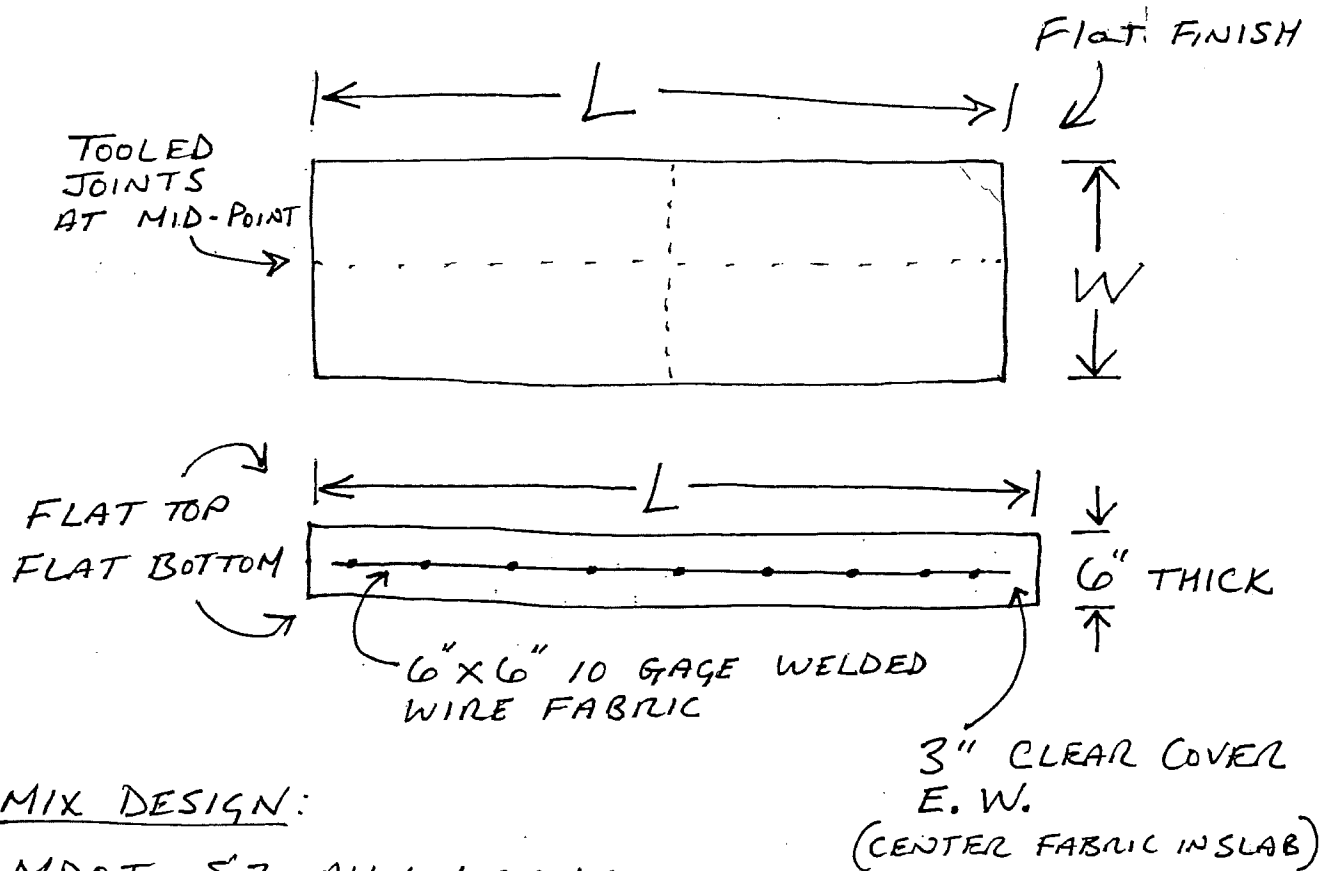 Flat FINISH
L
TOOLED
JOINTS
AT MID-POINT
W
L
FLAT TOP
FLAT BOTTOM
6" THICK
6" X 6" 10 GAGE WELDED
WIRE FABRIC
3" CLEAR COVER
E. W.
(CENTER FABRIC IN SLAB)
MIX DESIGN:
MDOT